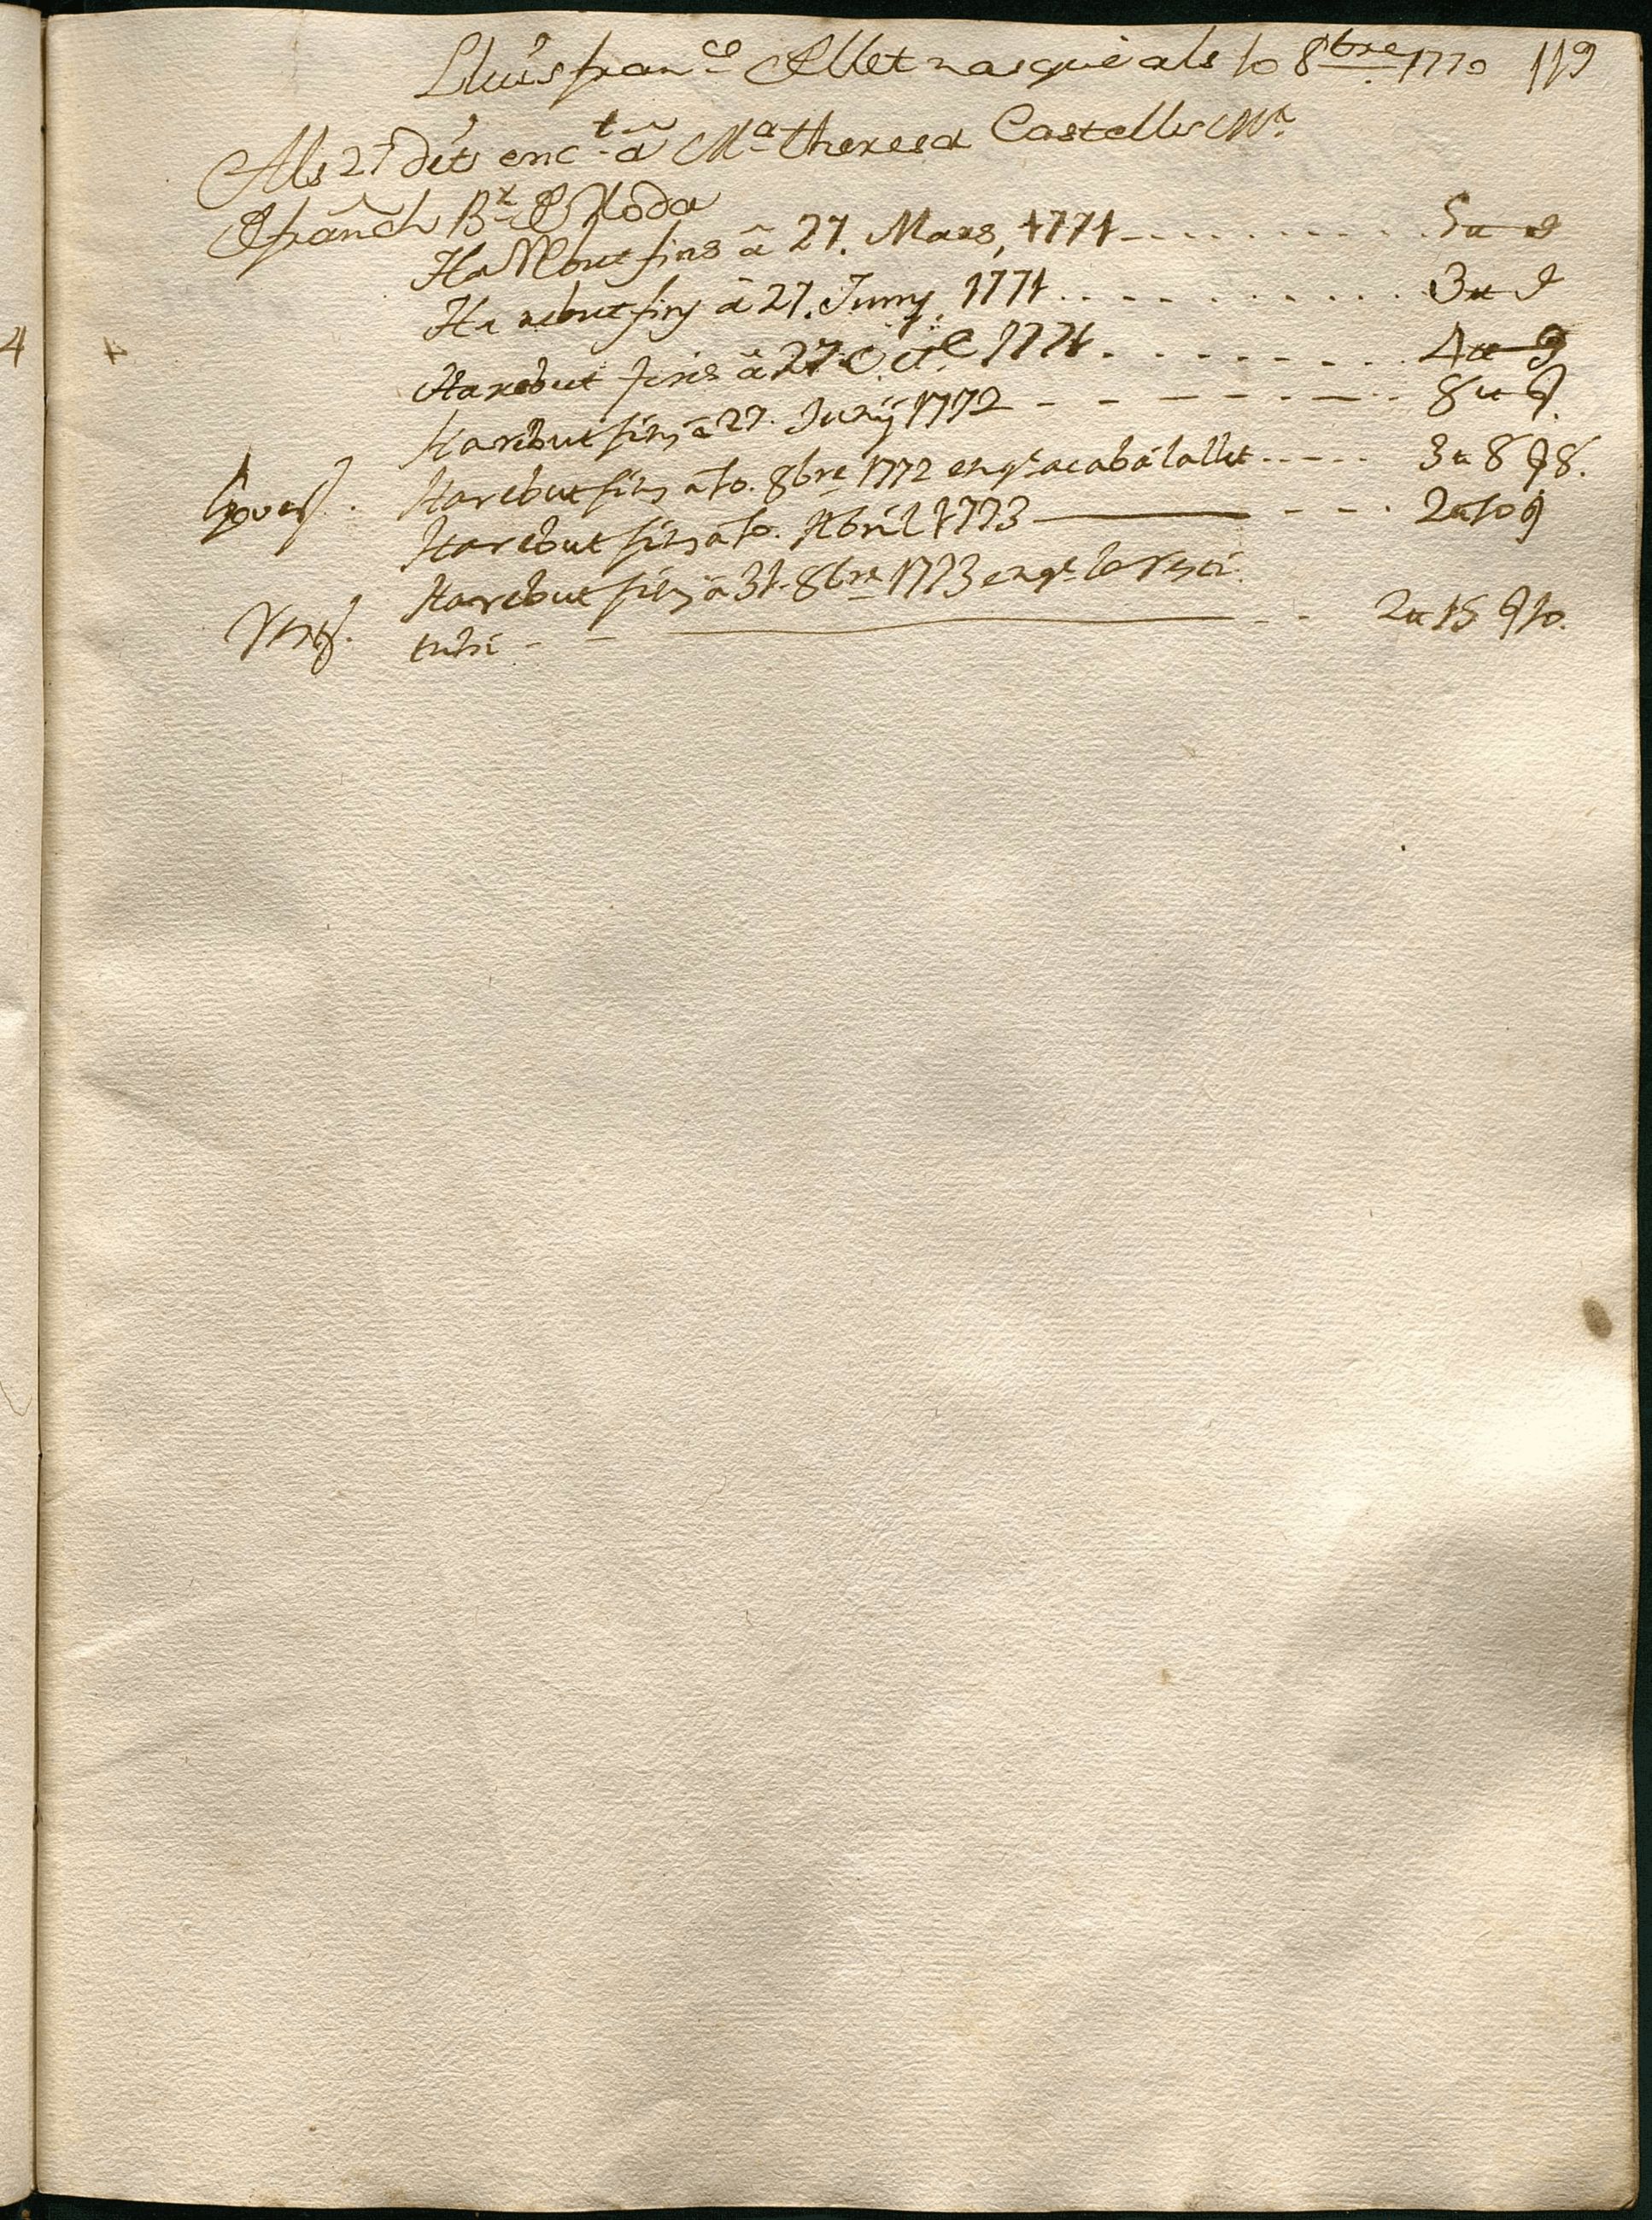 Lluis fran.co Allet nasqué als 10 8bre 1770 119
Als 27 dit enc.t â Ma theresa Castells Mr
franch Br Roda
Ha Rebut fins â 27. Mars, 1771 5 ll 9
Ha rebut fins â 27. Juny, 1771 3 ll 9
Ha rebut fins â 27 Oct.e 1771 4 ll 9
Ha rebut fins â 27. Juny 1772 8 ll 9
Ha rebut fins a 10. 8bre 1772 en qe acabá lallet 3 ll 8 9 8.
Ha rebut fins a 10. Abril 1773 2 ll 10 9
Ha rebut fins â 31. 8bre 1773 en qe
2 ll 15 9 10.